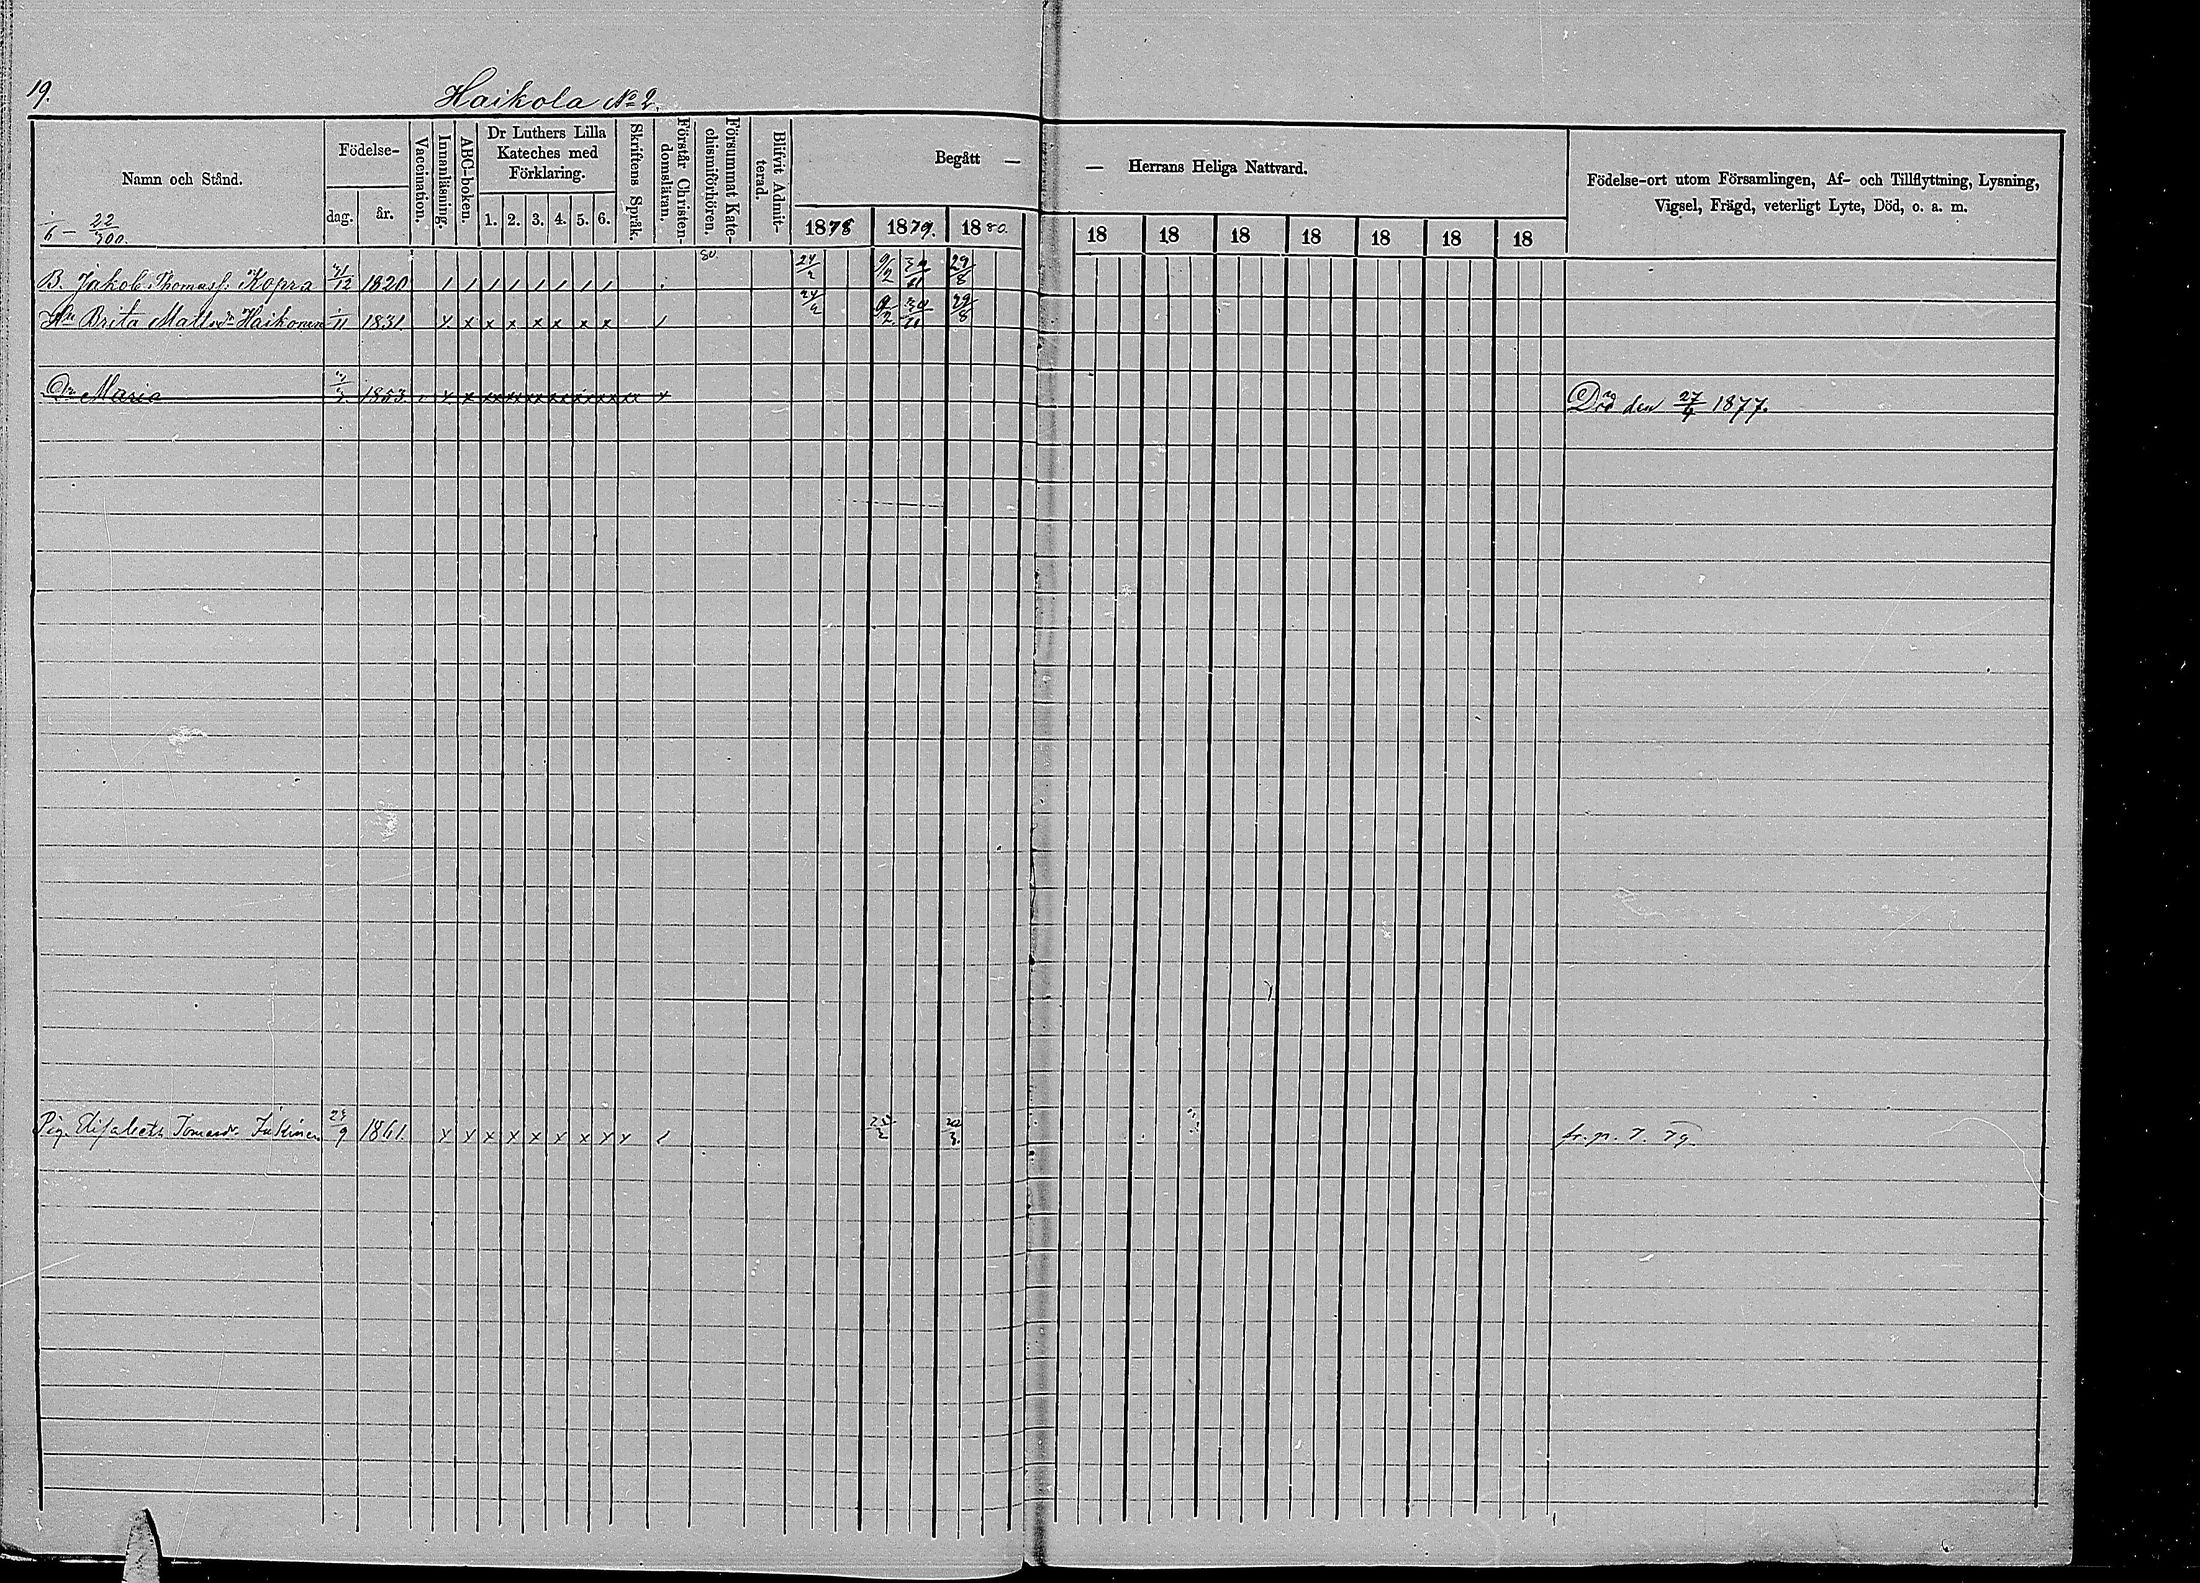 19.
Haikola No 2.
Namn och Stånd.
Födelse-
dag.
år.
Vaccination.
Innanläsning.
ABC-boken.
Dr Luthers Lilla
Kateches med
Förklaring.
1. 2. 3. 4. 5. 6.
Skriftens Språk.
Förstår Christen-
domsläran.
Försummat Kate-
chismiförhören.
Blifvit Admit-
terad.
Begått — — Herrans Heliga Nattvard.
1878 1879. 1880. 18 18 18 18 18 18 18
Födelse-ort utom Församlingen, Af- och Tillflyttning, Lysning,
Vigsel, Frägd, veterligt Lyte, Död, o. a. m.
22/300.
80.
B. Jakob Thomass: Kopra /12 1820 / / / / / / / / 9/2 29/8
Hu Brita Mattsdr Haikonen 1/11 1831 x x x x x x x x / 9/2 29/8
Dr Maria 1853 x x xx xx xx xx xx xx xx x Död den 27/4 1877.
Pig. Elisabeth Tomasdr. /9 1861. x x x x x x x x x / fr. p. 7. 79.